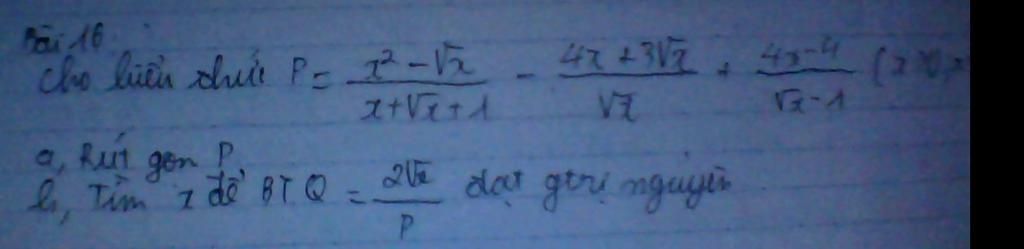 Bài 16.
Cho biểu thức P = \frac{x^2 - \sqrt{x}}{x + \sqrt{x} + 1} - \frac{4x + 3\sqrt{x}}{\sqrt{x}} + \frac{4x - 4}{\sqrt{x} - 1} (x > 0, x
a, Rút gọn P
b, Tìm x để BT Q = \frac{2\sqrt{x}}{P} đạt gtrị nguyên